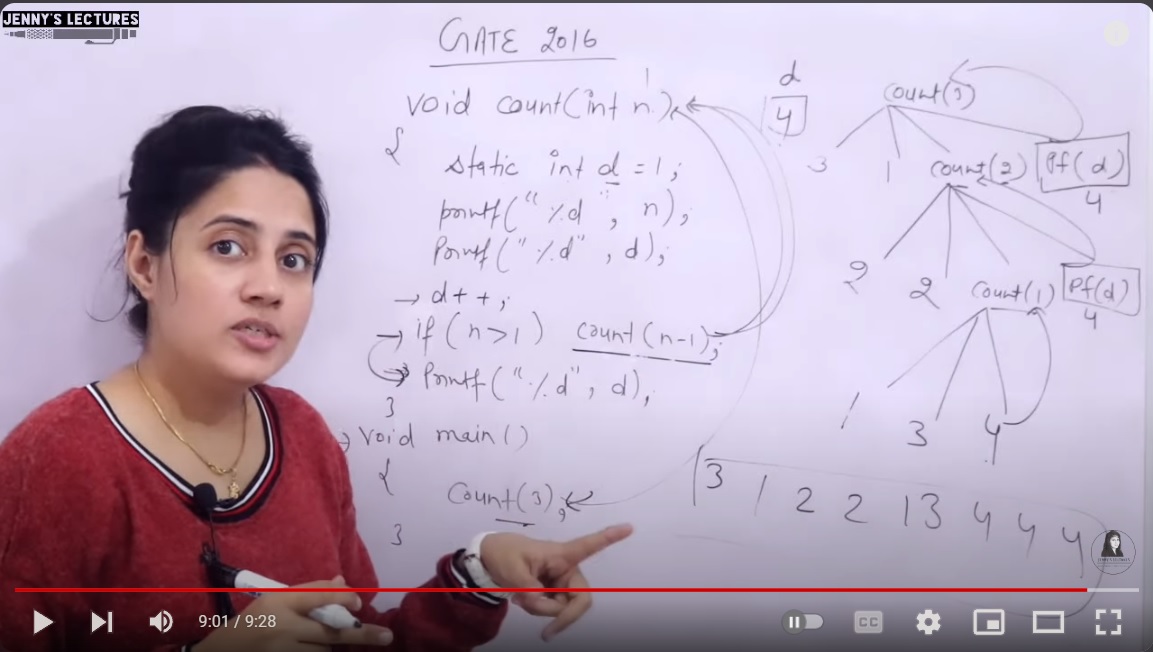 JENNY'S LECTURES
GATE 2016
1
void count(int n)
{
static int d = 1;
printf("%d", n);
Printf("%d", d);
→ d++;
→ if (n>1) count(n-1);
→ Printf("%d", d);
}
→ void main()
{
Count(3);
}
d
4
count(3)
3 1 count(2) Pf(d)
4
2 2 count(1) Pf(d)
4
1 3 4
3 1 2 2 1 3 4 4 4
9:01 / 9:28
CC